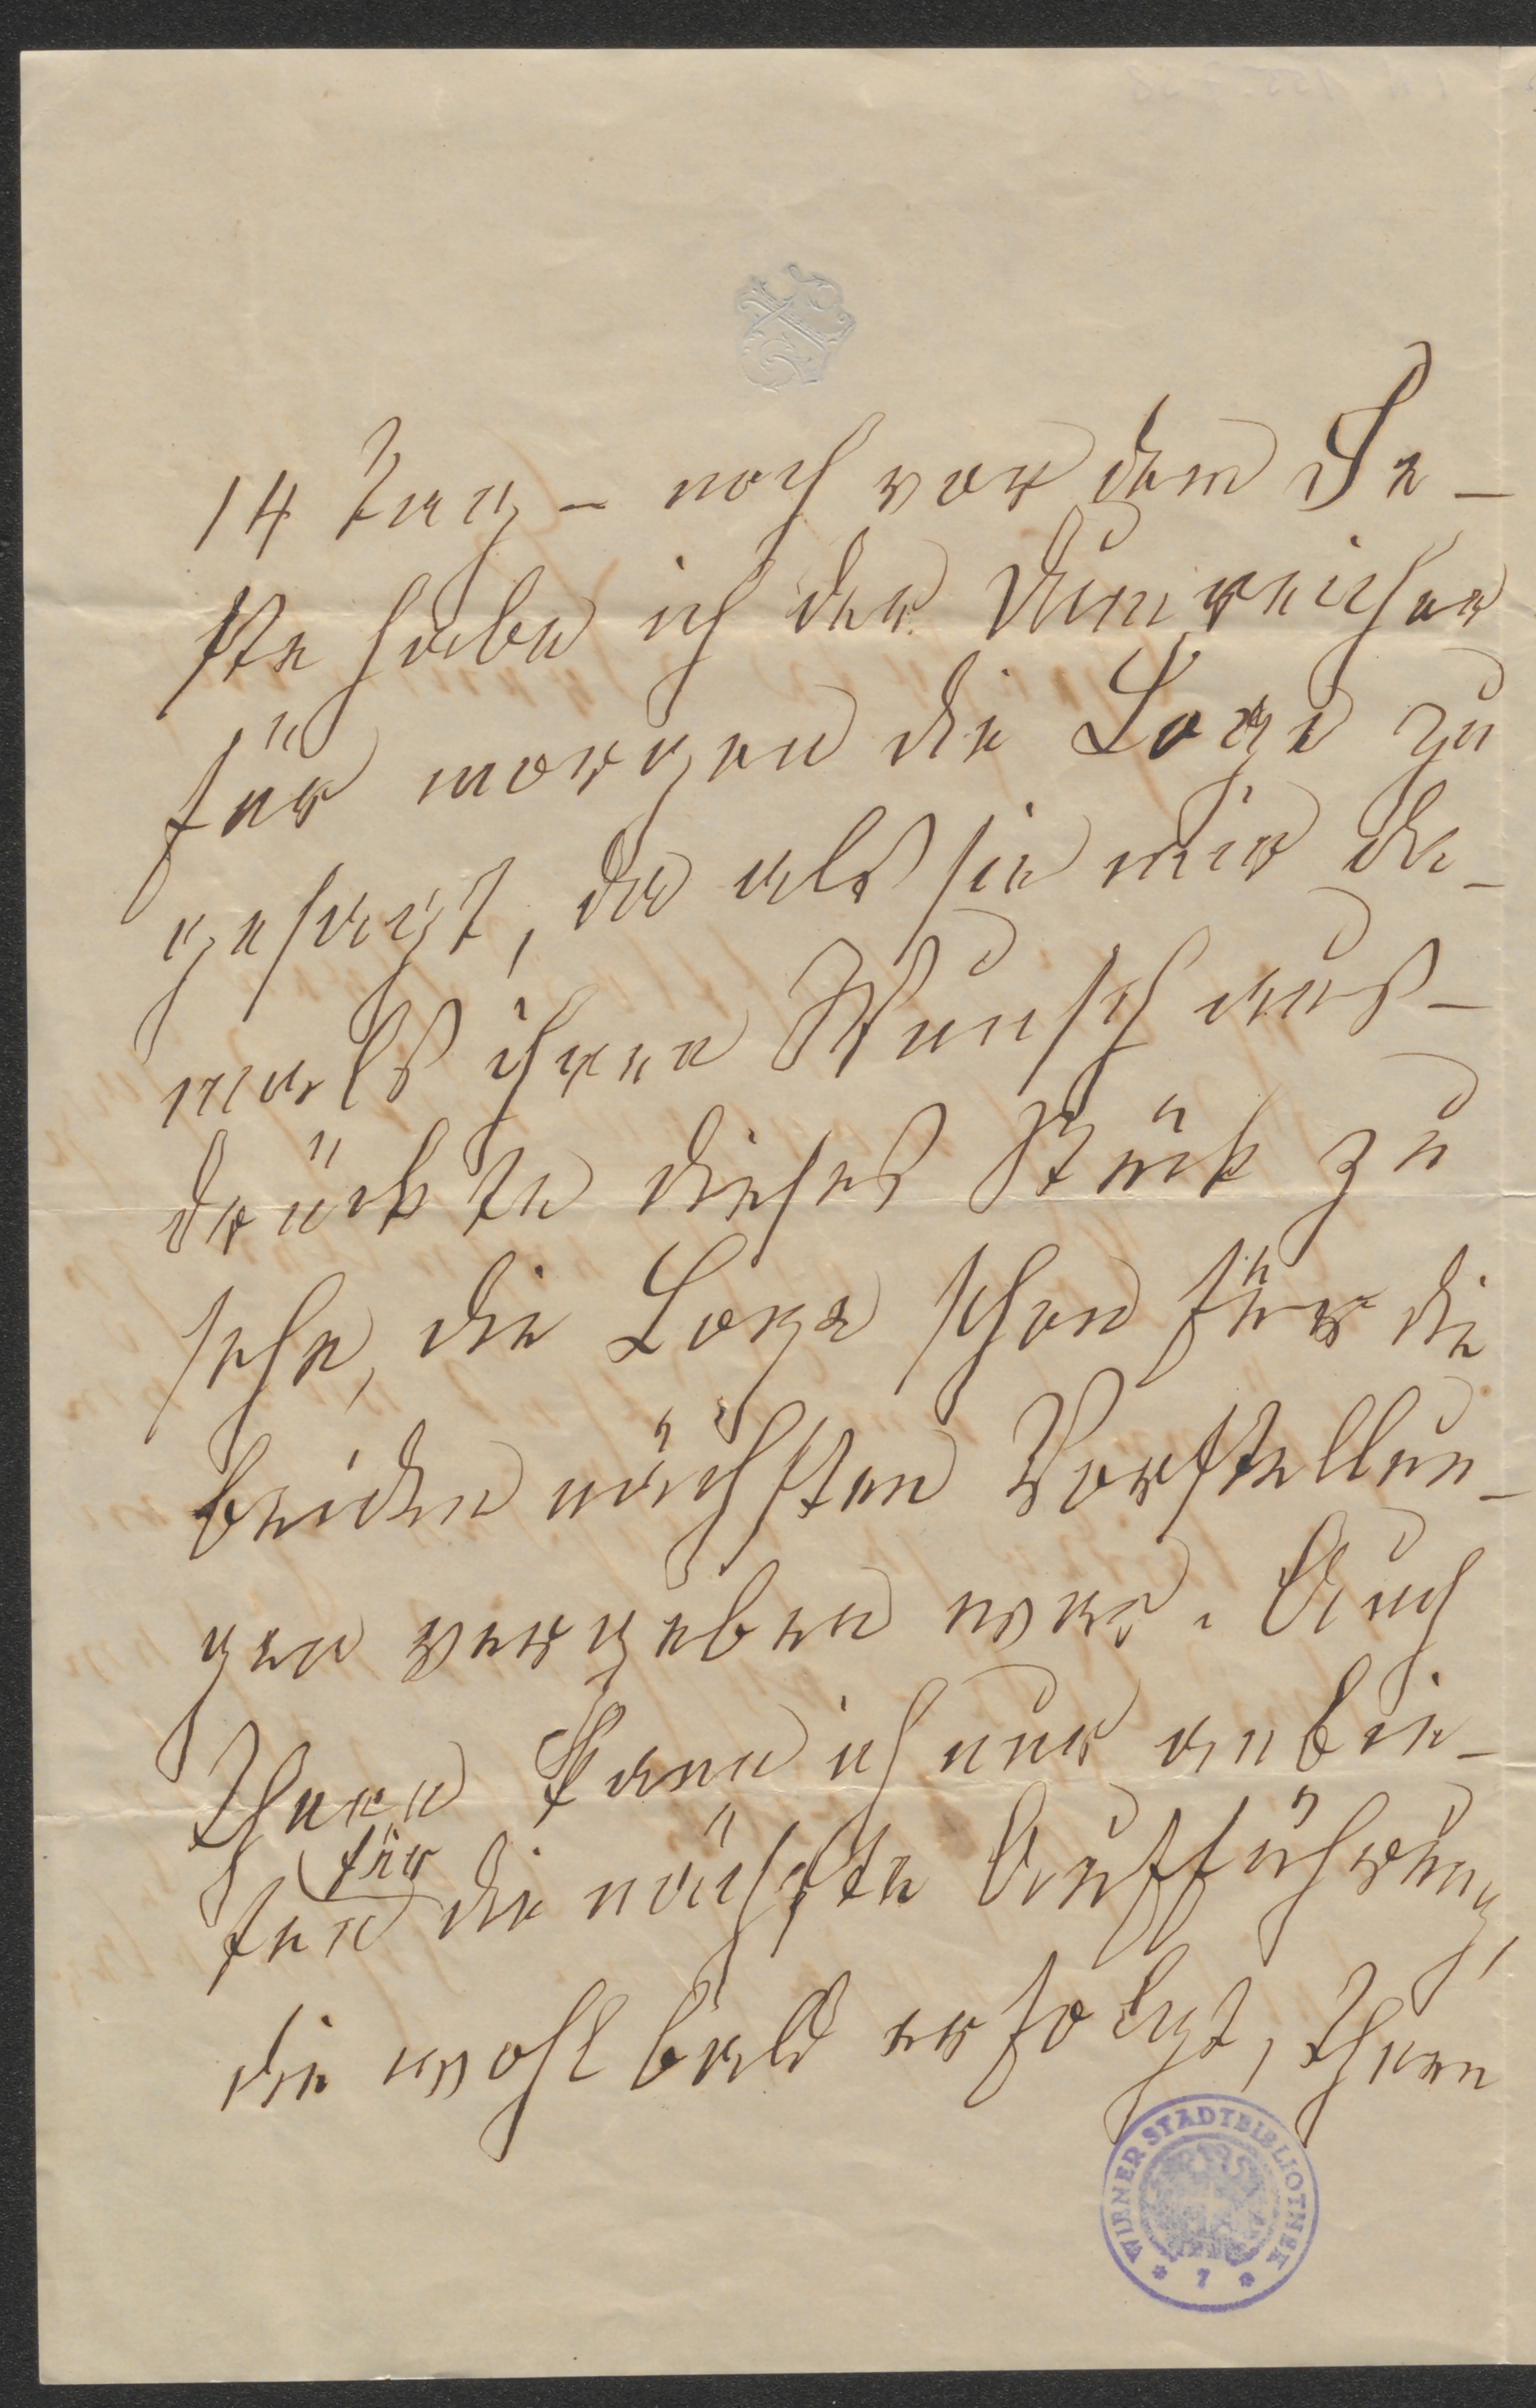 14 Tag – noch vor dem Fe-
ste habe ich der Dumreicher
für morgen die Loge zu
gesagt, da als sie mir da-
mals ihren Wunsch aus-
drückte dieses Stück zu
sehn, die Loge schon für die
beiden nächsten Vorstellun-
gen vergeben war. Auch
Ihnen kann ich nur anbie-
für
ten die nächste Aufführung,
die wohl bald erfolgt, Ihnen
WIENER STADTBIBLIOTHEK
* 7 *